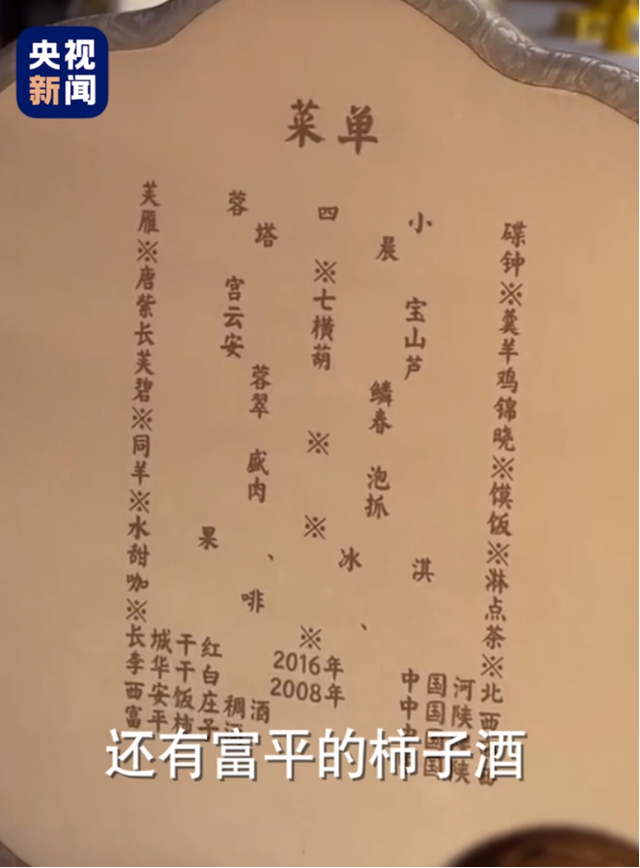 央视
新闻
菜单
芙蓉四小碟
雁塔晨钟
※
唐宫七宝羹
紫云横山羊
长安葫芦鸡
芙蓉鳞锦
碧翠春晓
※
同盛泡馍
羊肉抓饭
※
水果、冰淇淋
甜点
咖啡、茶
※
长城干红 2016年 中国河北
李华干白 2008年 中国陕西
西安饭庄稠酒 中国
富平柿子酒 中国陕西
还有富平的柿子酒